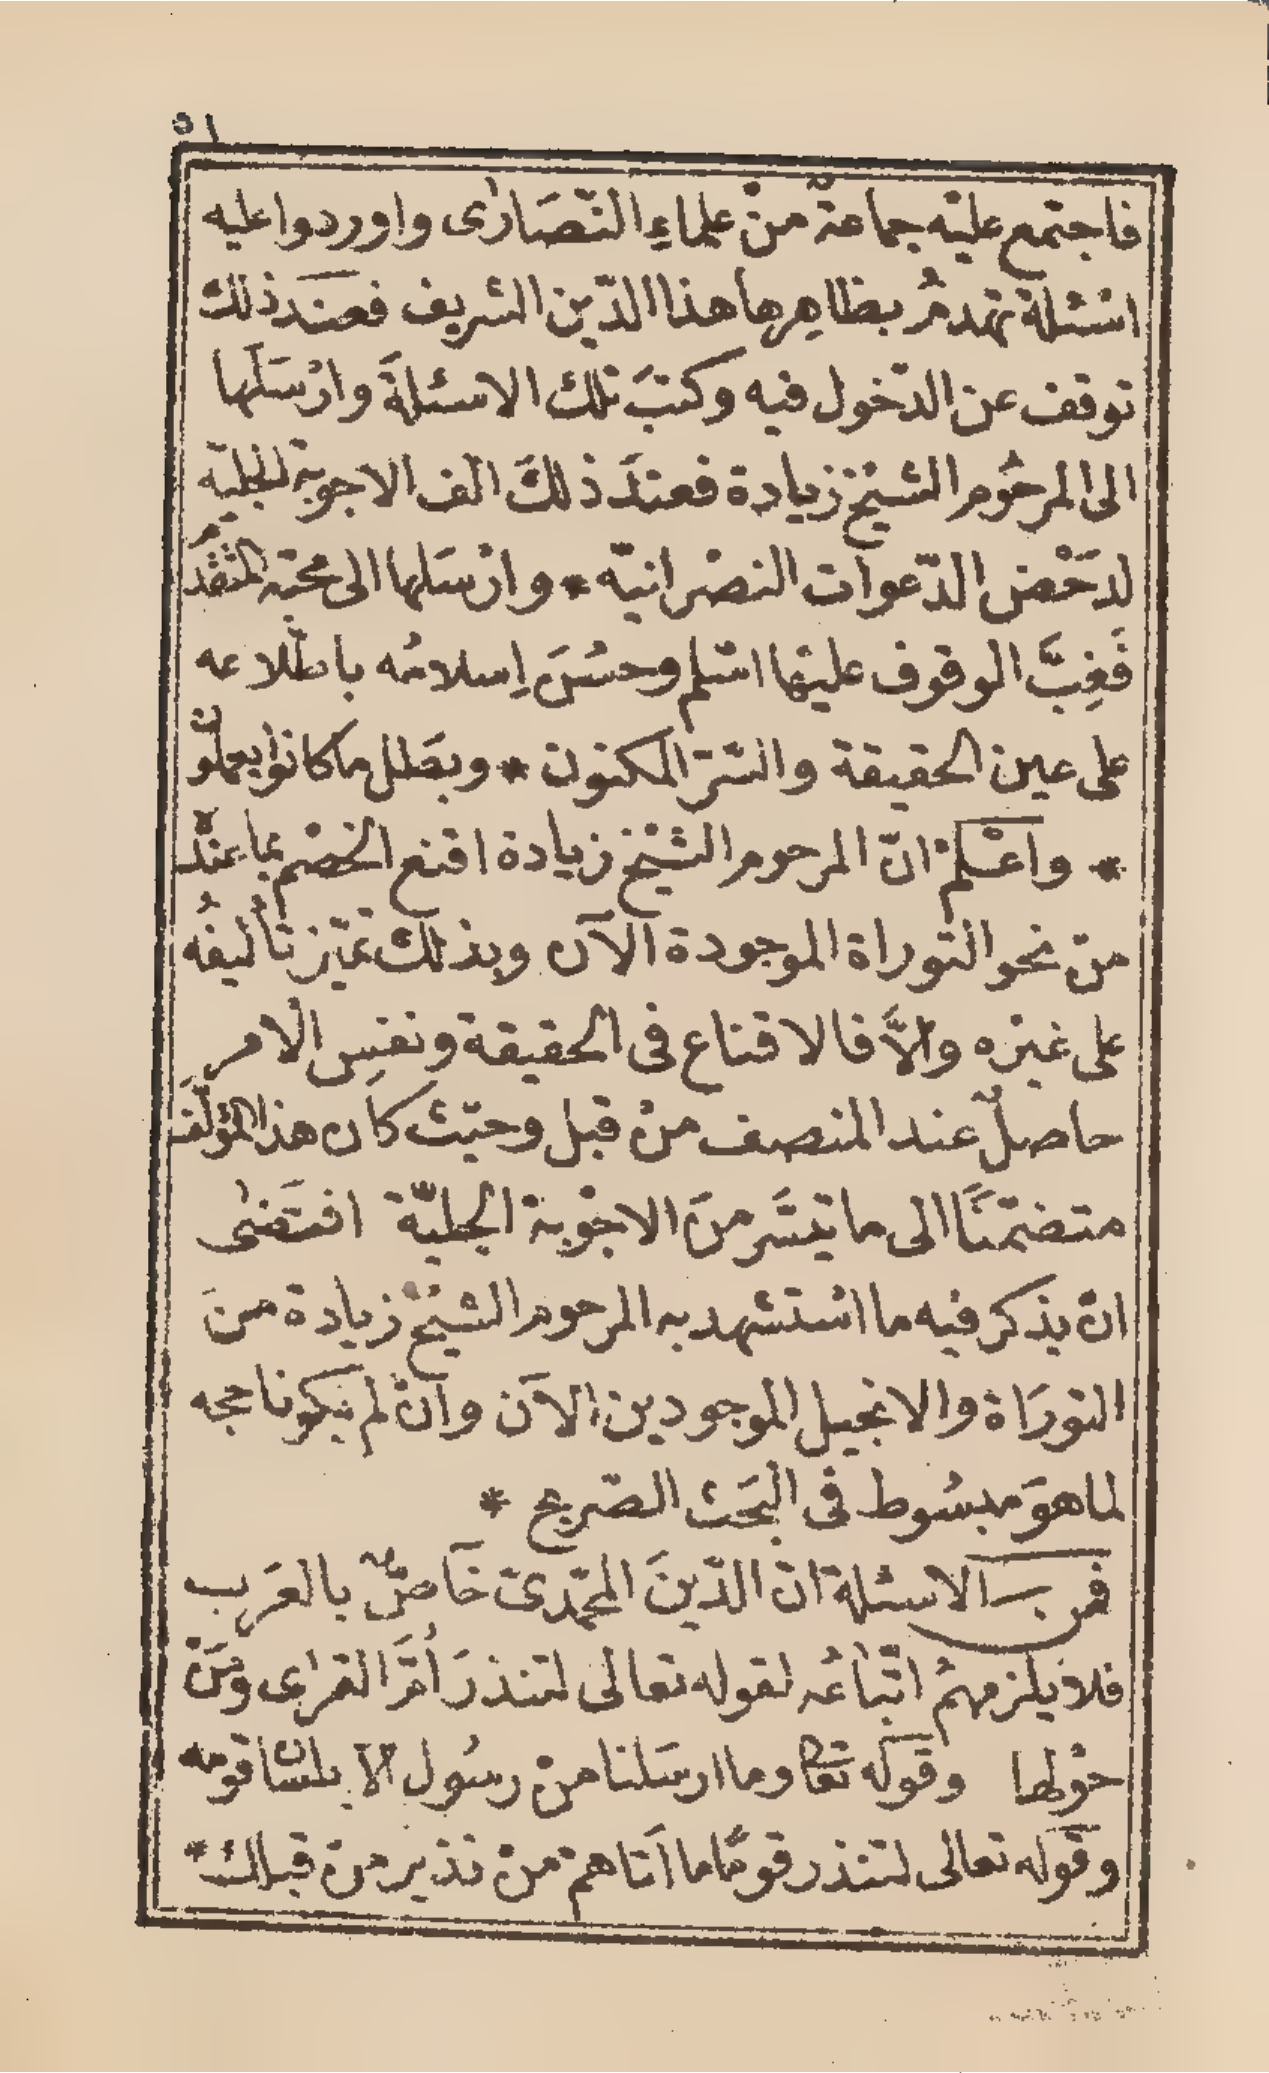 ٥١
فاجتمع عليْه جماعةٌ منْ علماءِ النّصَارٰى واوردوا عليه
اسْئلة تهدمُ بظاهِرها هذا الدّين الشريف فعنَد ذلك
توقف عن الدّخول فيه وكتبَ تلك الاسئلةَ وارْسَلَها
الى المرحُوم الشيْخ زيادة فعندَ ذلكَ الّف الاجوبة الجليّه
لدَحْضِ الدّعوات النصْرانيّه * وارْسَلها الى محبّه المتقدّم
فَغِبَّ الوقوف عليْها اسْلم وحسُنَ اِسلامُه باطّلاعه
على عين الحقيقة والسّرّ المكنون * وبطَل ما كانوا يعملون
* واعْلمْ انّ المرحوم الشيْخ زيادة اقنع الخصْم بما عنْده
منْ نحو التوراة الموجودة الآن وبذلك تميّز تأليفُه
على غيْره والَّا فالاقناع فى الحقيقة ونفسِ الامر
حاصلٌ عند المنصف منْ قبل وحيْث كان هذا المؤلَّف
متضمّنًا الى ما تيسَّر منَ الاجْوبة الجليّة اقتَضىٰ
انْ يذكر فيه ما اسْتشهد به المرحوم الشيْخ زيادة منَ
التورَاة والانجيل الموجودين الآن وانْ لم يَكونا حجه
لما هوَ مبسُوط فى البَحْث الصّريح *
فمن الاسئلة انّ الدّينَ المحمّدىّ خَاصٌّ بالعَرَب
فلا يلزمهمُ اتّباعُه لقوله تعالى لتنذرَ اُمَّ القرٰى ومَنْ
حوْلها وقوله تعا وما ارسَلنا منْ رسُول الّا بلسَان قومه
وقوله تعالى لتنذر قومًا ما اَتاهمْ منْ نذير منْ قبلك *